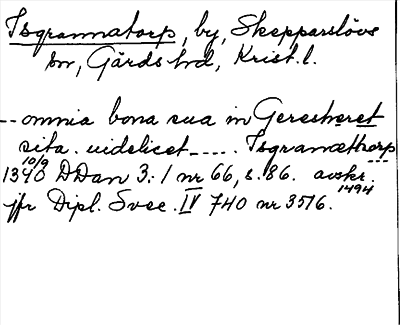 Isgrannatorp, by, Skepparslövs
sn, Gärds hd, Krist. l.
-- omnia bona sua in Geresheret
sita. uidelicet ---- Isgranæthorp
10/9
1340 DDan 3:1 nr 66, s. 86. avskr. 1494
jfr Dipl. Svec. IV 740 nr 3516.